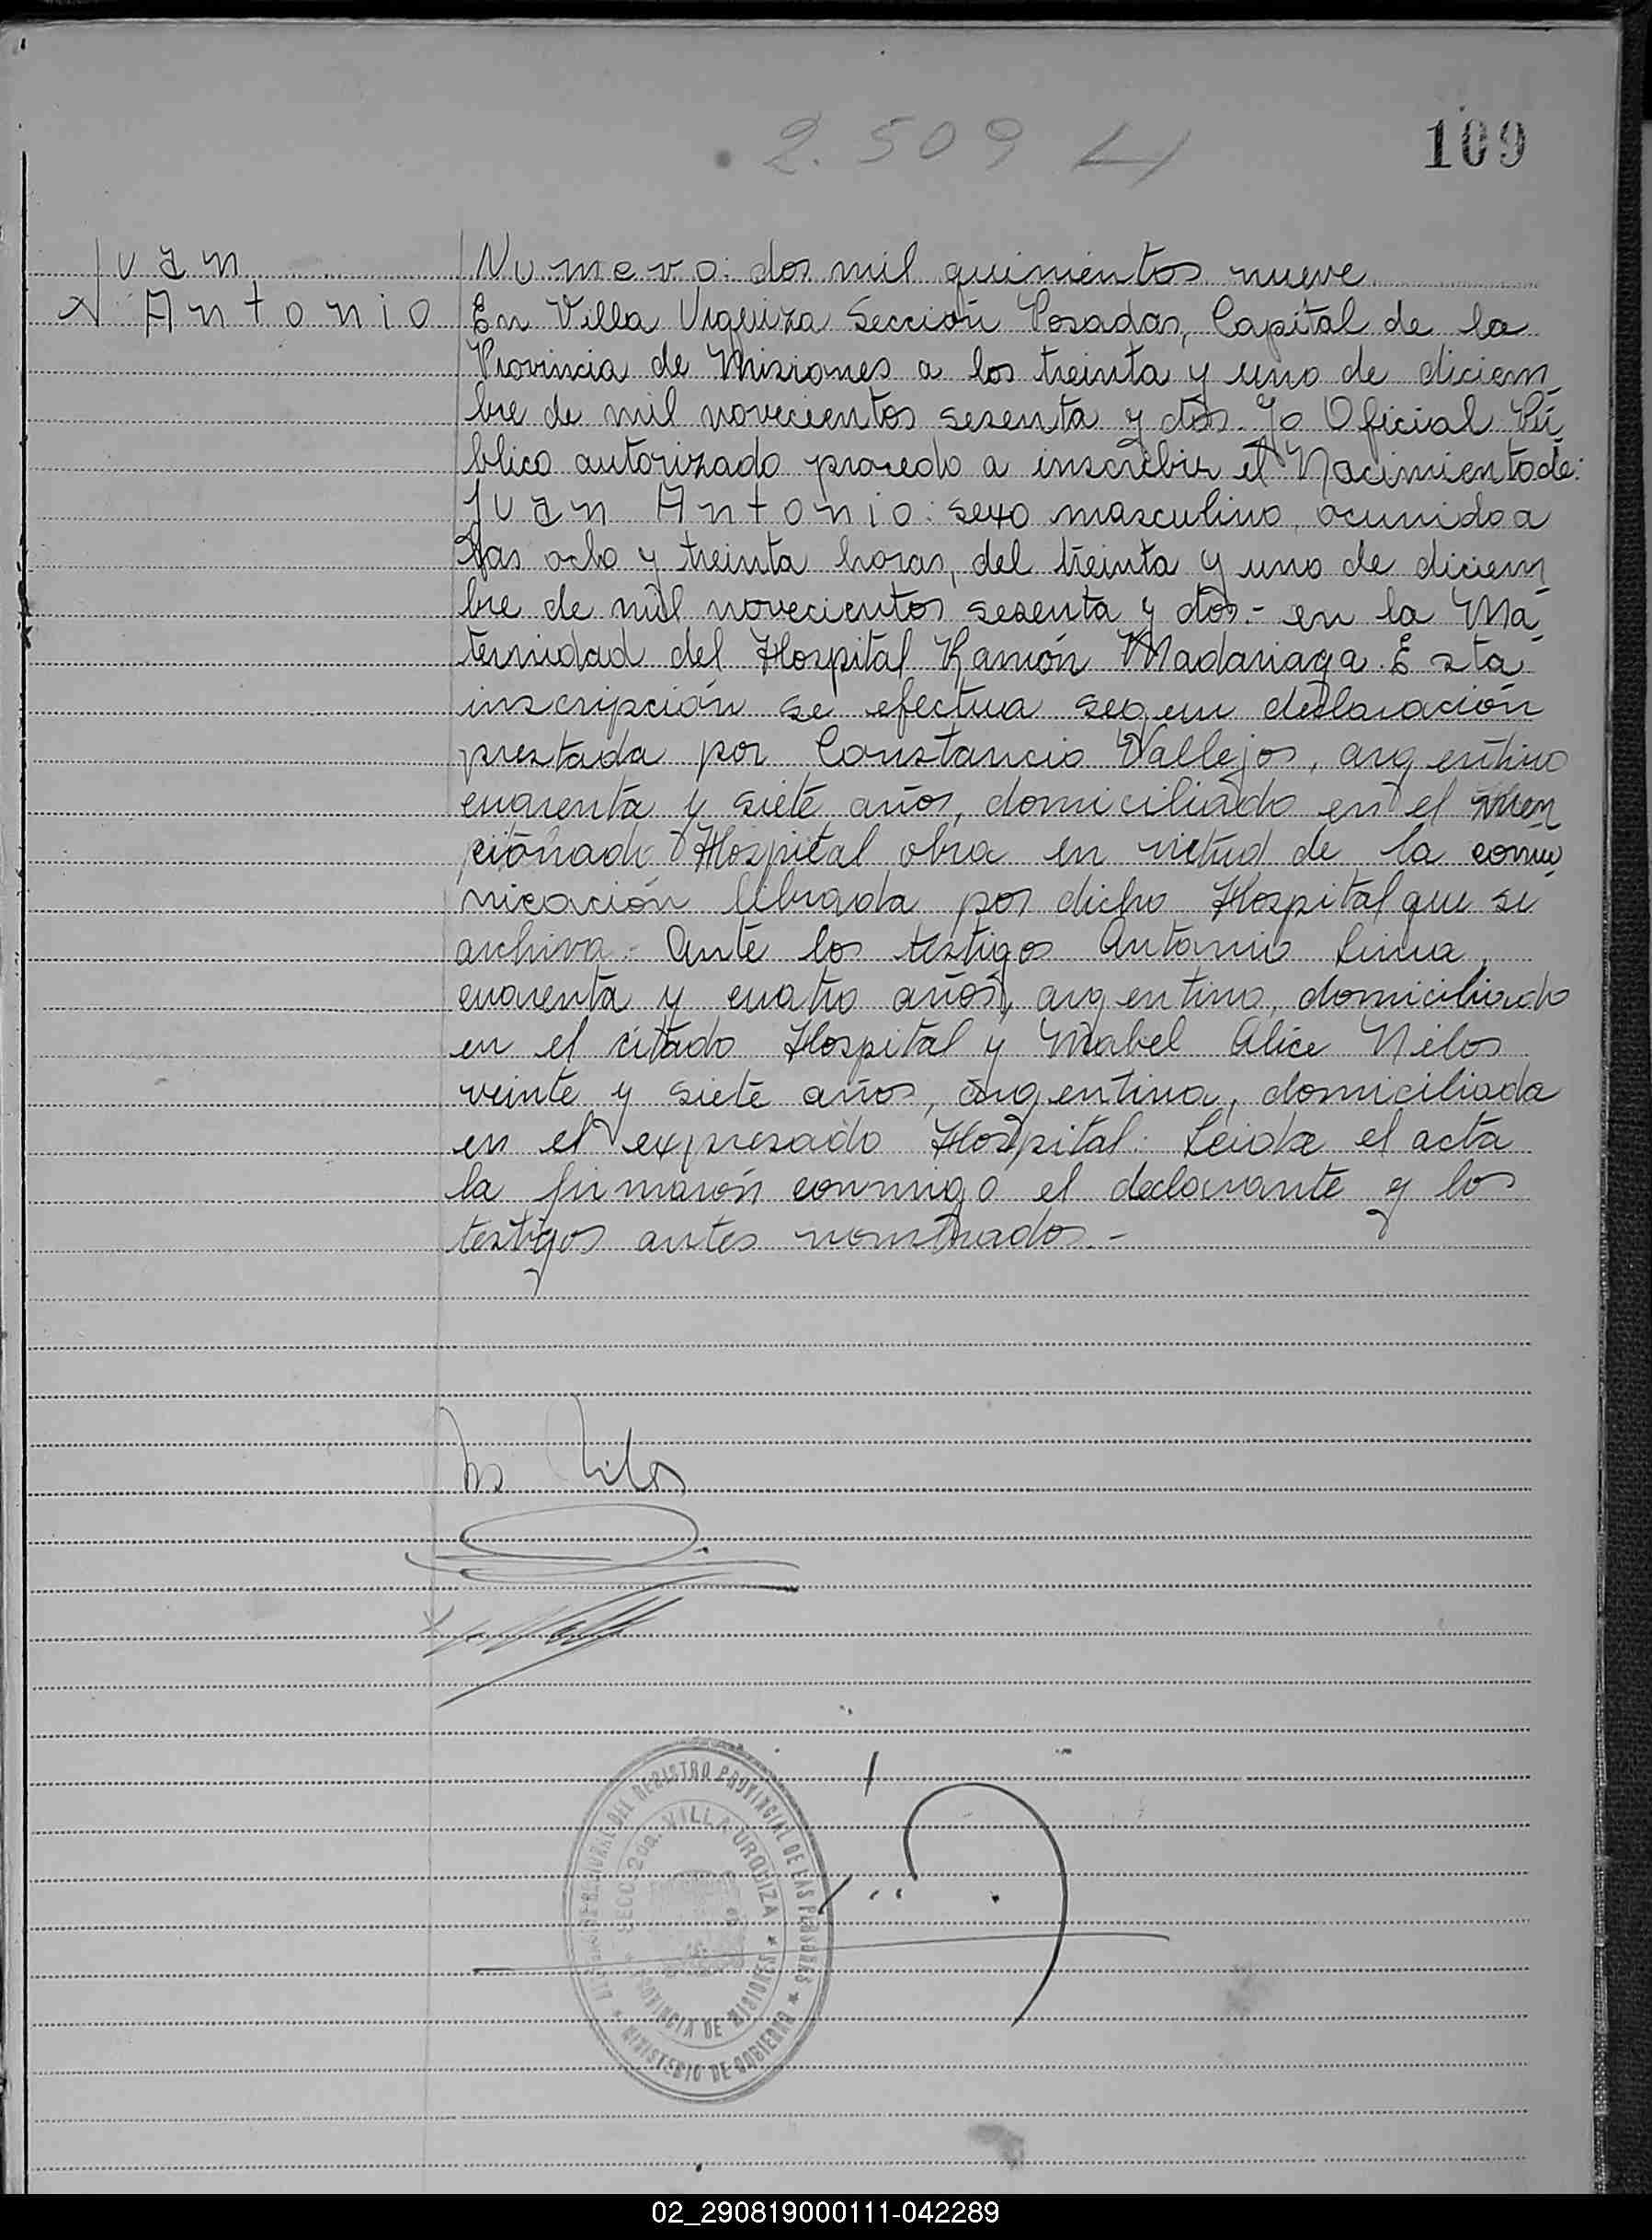 2.509
109
Juan
Antonio
Numero: dos mil quinientos nueve
En Villa Urquiza Sección Posadas, Capital de la
Provincia de Misiones a los treinta y uno de diciem
bre de mil novecientos sesenta y dos. Yo Oficial Pú
blico autorizado procedo a inscribir el Nacimiento de:
Juan Antonio: sexo masculino, ocurrido a
las ocho y treinta horas, del treinta y uno de diciem
bre de mil novecientos sesenta y dos.- en la Ma
ternidad del Hospital Ramón Madariaga. Esta
inscripción se efectua segun declaración
prestada por Constancio Vallejos, argentino
cuarenta y siete años, domiciliado en el men
cionado Hospital obra en virtud de la comu
nicación librada por dicho Hospital que se
archiva.- Ante los testigos Antonio Lima,
cuarenta y cuatro años, argentino, domiciliado
en el citado Hospital y Mabel Alice Nilos
veinte y siete años, argentina, domiciliada
en el expresado Hospital: Leida el acta
la firmarón conmigo el declarante y los
testigos antes nombrados.-
Nilos
DEL REGISTRO PROVINCIAL DE LAS PERSONAS
SECC. 2da. VILLA URQUIZA
PROVINCIA DE MISIONES
MINISTERIO DE GOBIERNO
02_290819000111-042289